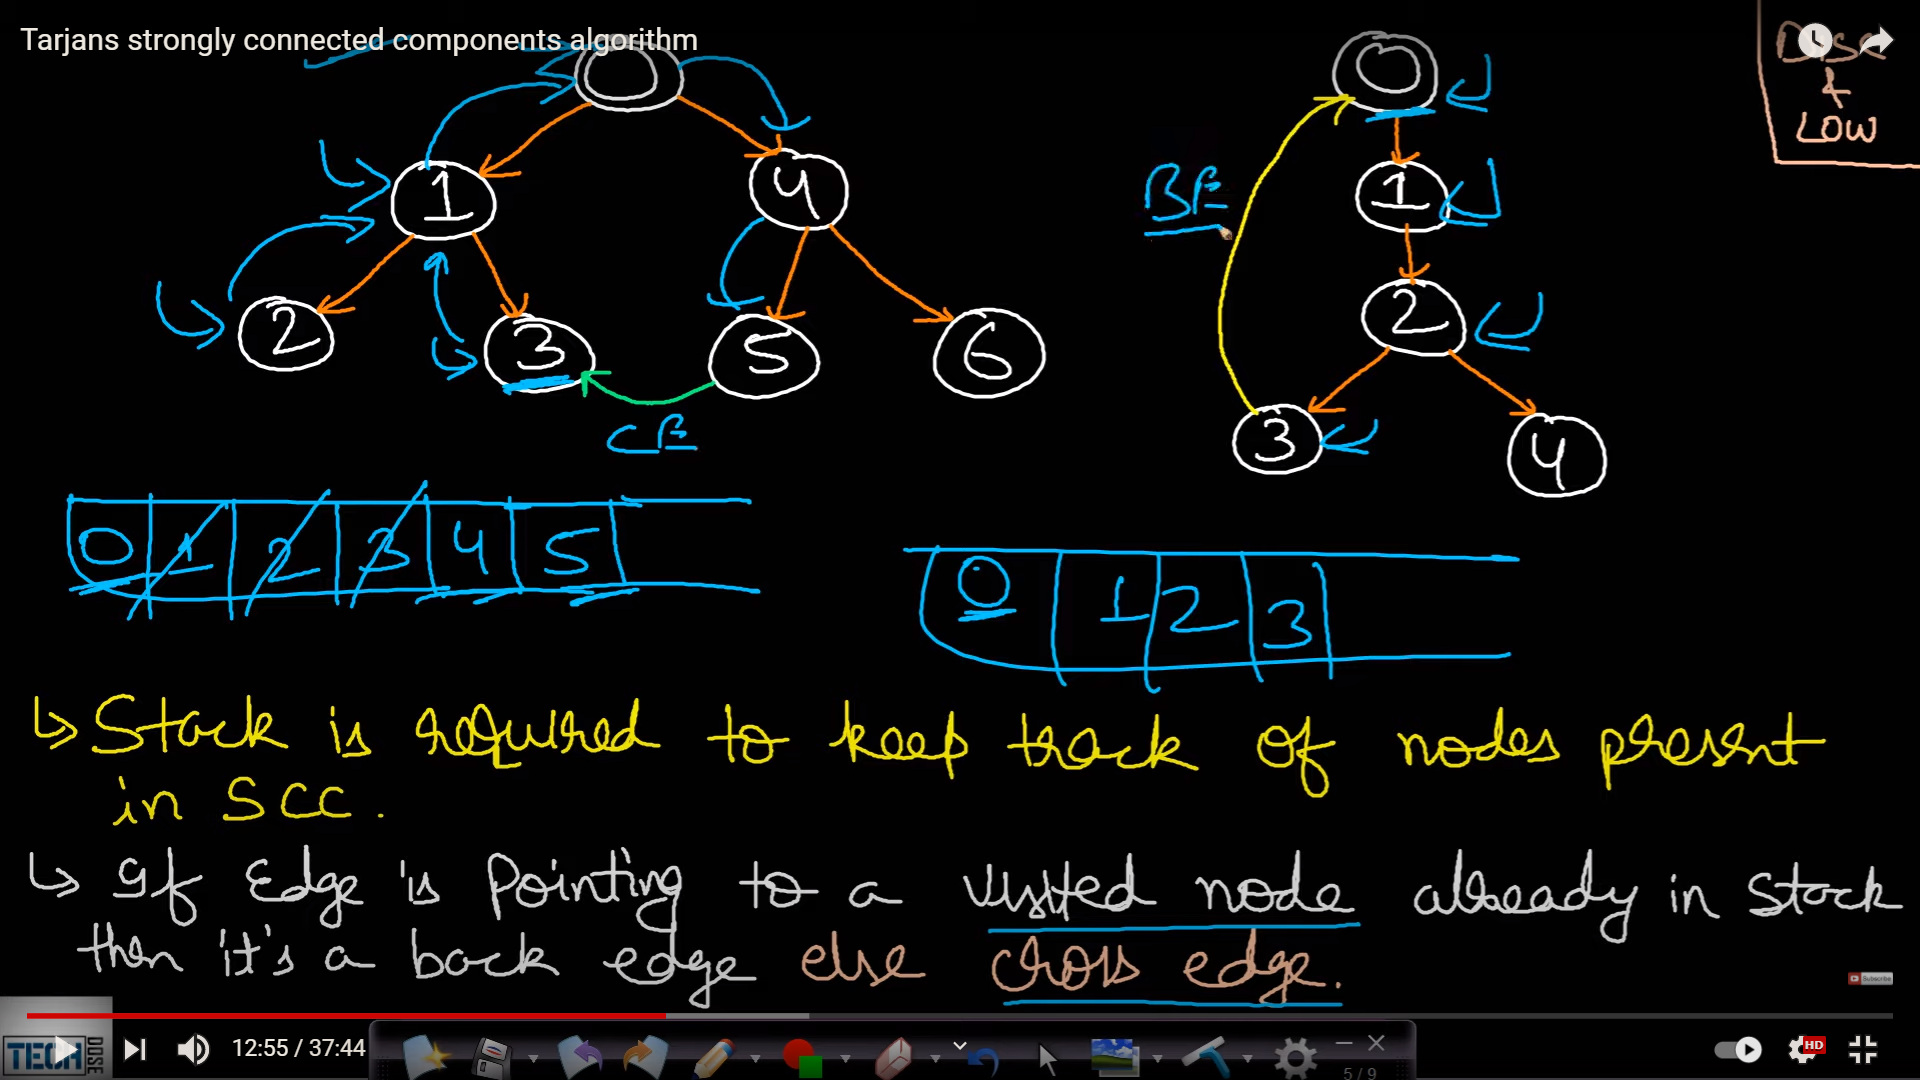 Tarjans strongly connected components algorithm
0
1
4
2
3
5
6
CE
BE
0
1
2
3
4
DISC
&
LOW
0 1 2 3 4 5
0 1 2 3
↳ Stack is required to keep track of nodes present
in SCC.
↳ If Edge is Pointing to a visited node already in Stack
then it's a back edge else cross edge.
Subscribe
TECH DOSE
12:55 / 37:44
HD
5 / 9